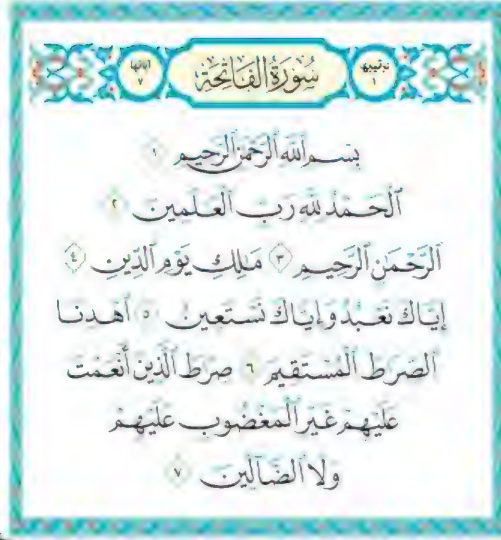 ترتيبها ١
سُورَةُ الْفَاتِحَةِ
آياتها ٧
بِسْمِ ٱللَّهِ ٱلرَّحْمَٰنِ ٱلرَّحِيمِ ١
ٱلْحَمْدُ لِلَّهِ رَبِّ ٱلْعَٰلَمِينَ ٢
ٱلرَّحْمَٰنِ ٱلرَّحِيمِ ٣ مَٰلِكِ يَوْمِ ٱلدِّينِ ٤
إِيَّاكَ نَعْبُدُ وَإِيَّاكَ نَسْتَعِينُ ٥ ٱهْدِنَا
ٱلصِّرَٰطَ ٱلْمُسْتَقِيمَ ٦ صِرَٰطَ ٱلَّذِينَ أَنْعَمْتَ
عَلَيْهِمْ غَيْرِ ٱلْمَغْضُوبِ عَلَيْهِمْ
وَلَا ٱلضَّآلِّينَ ٧